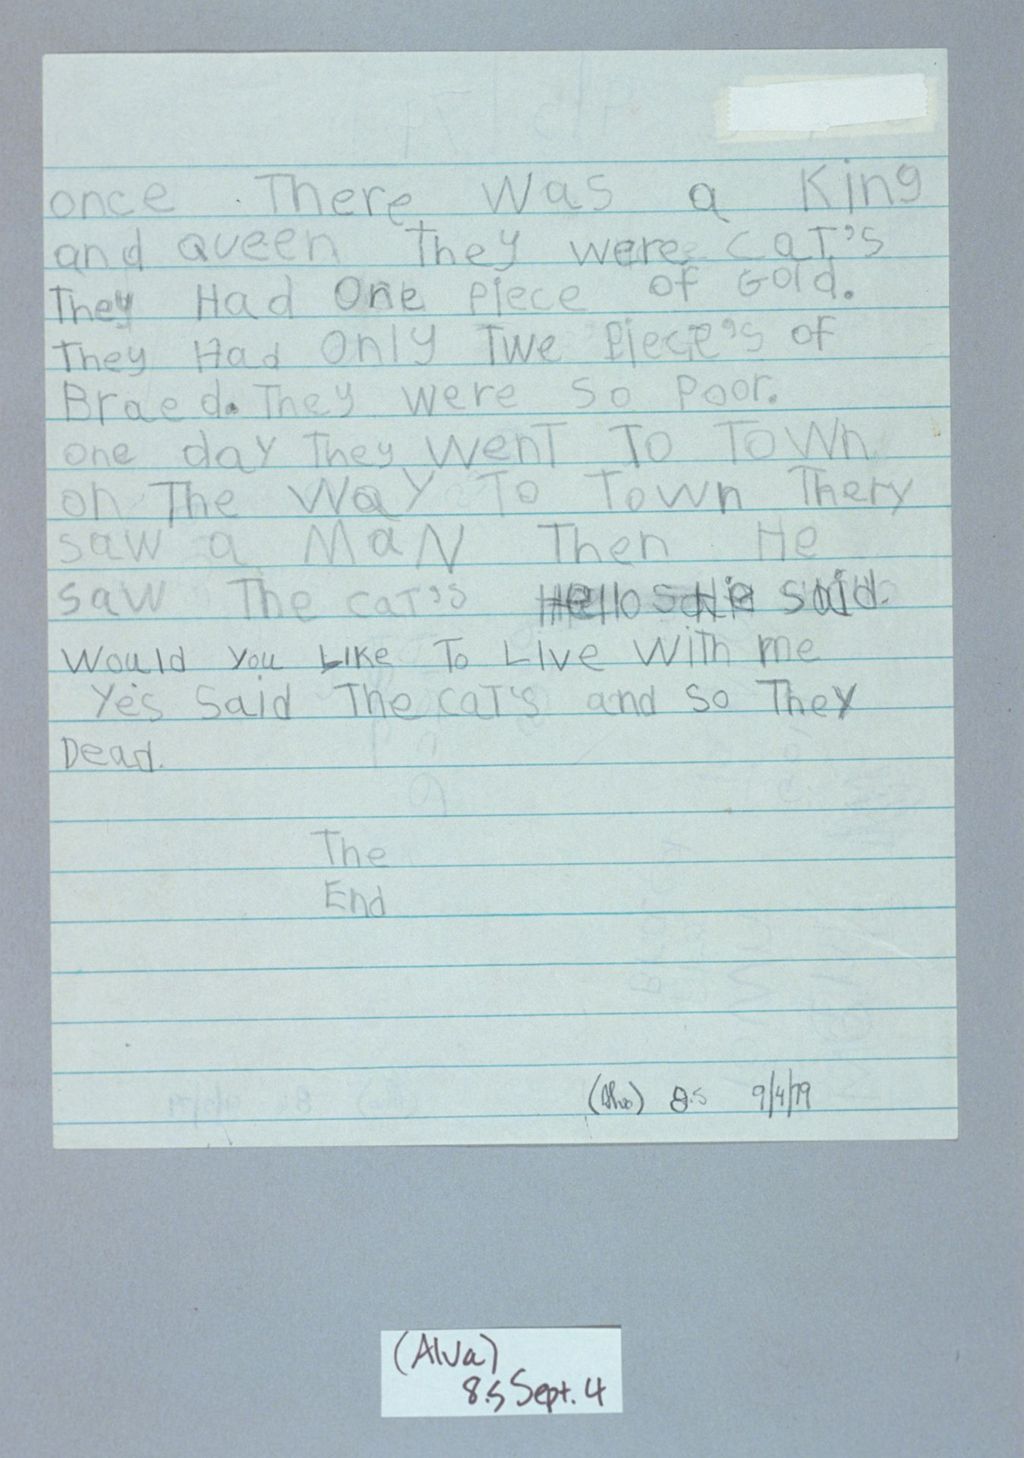 once There was a King
and queen They were caT's
They Had One piece of Gold.
They Had Only Twe Piece's of
Braed. They were so Poor.
one day They WenT To ToWn
on The WaY To Town Thery
saw a MaN Then He
saw The caT's Hello He said.
Would You Like To Live WiTh me
Yes Said The caT's and so They
Dead.
The
End
(Alva) 8.5 9/4/79
(Alva)
8.5 Sept. 4